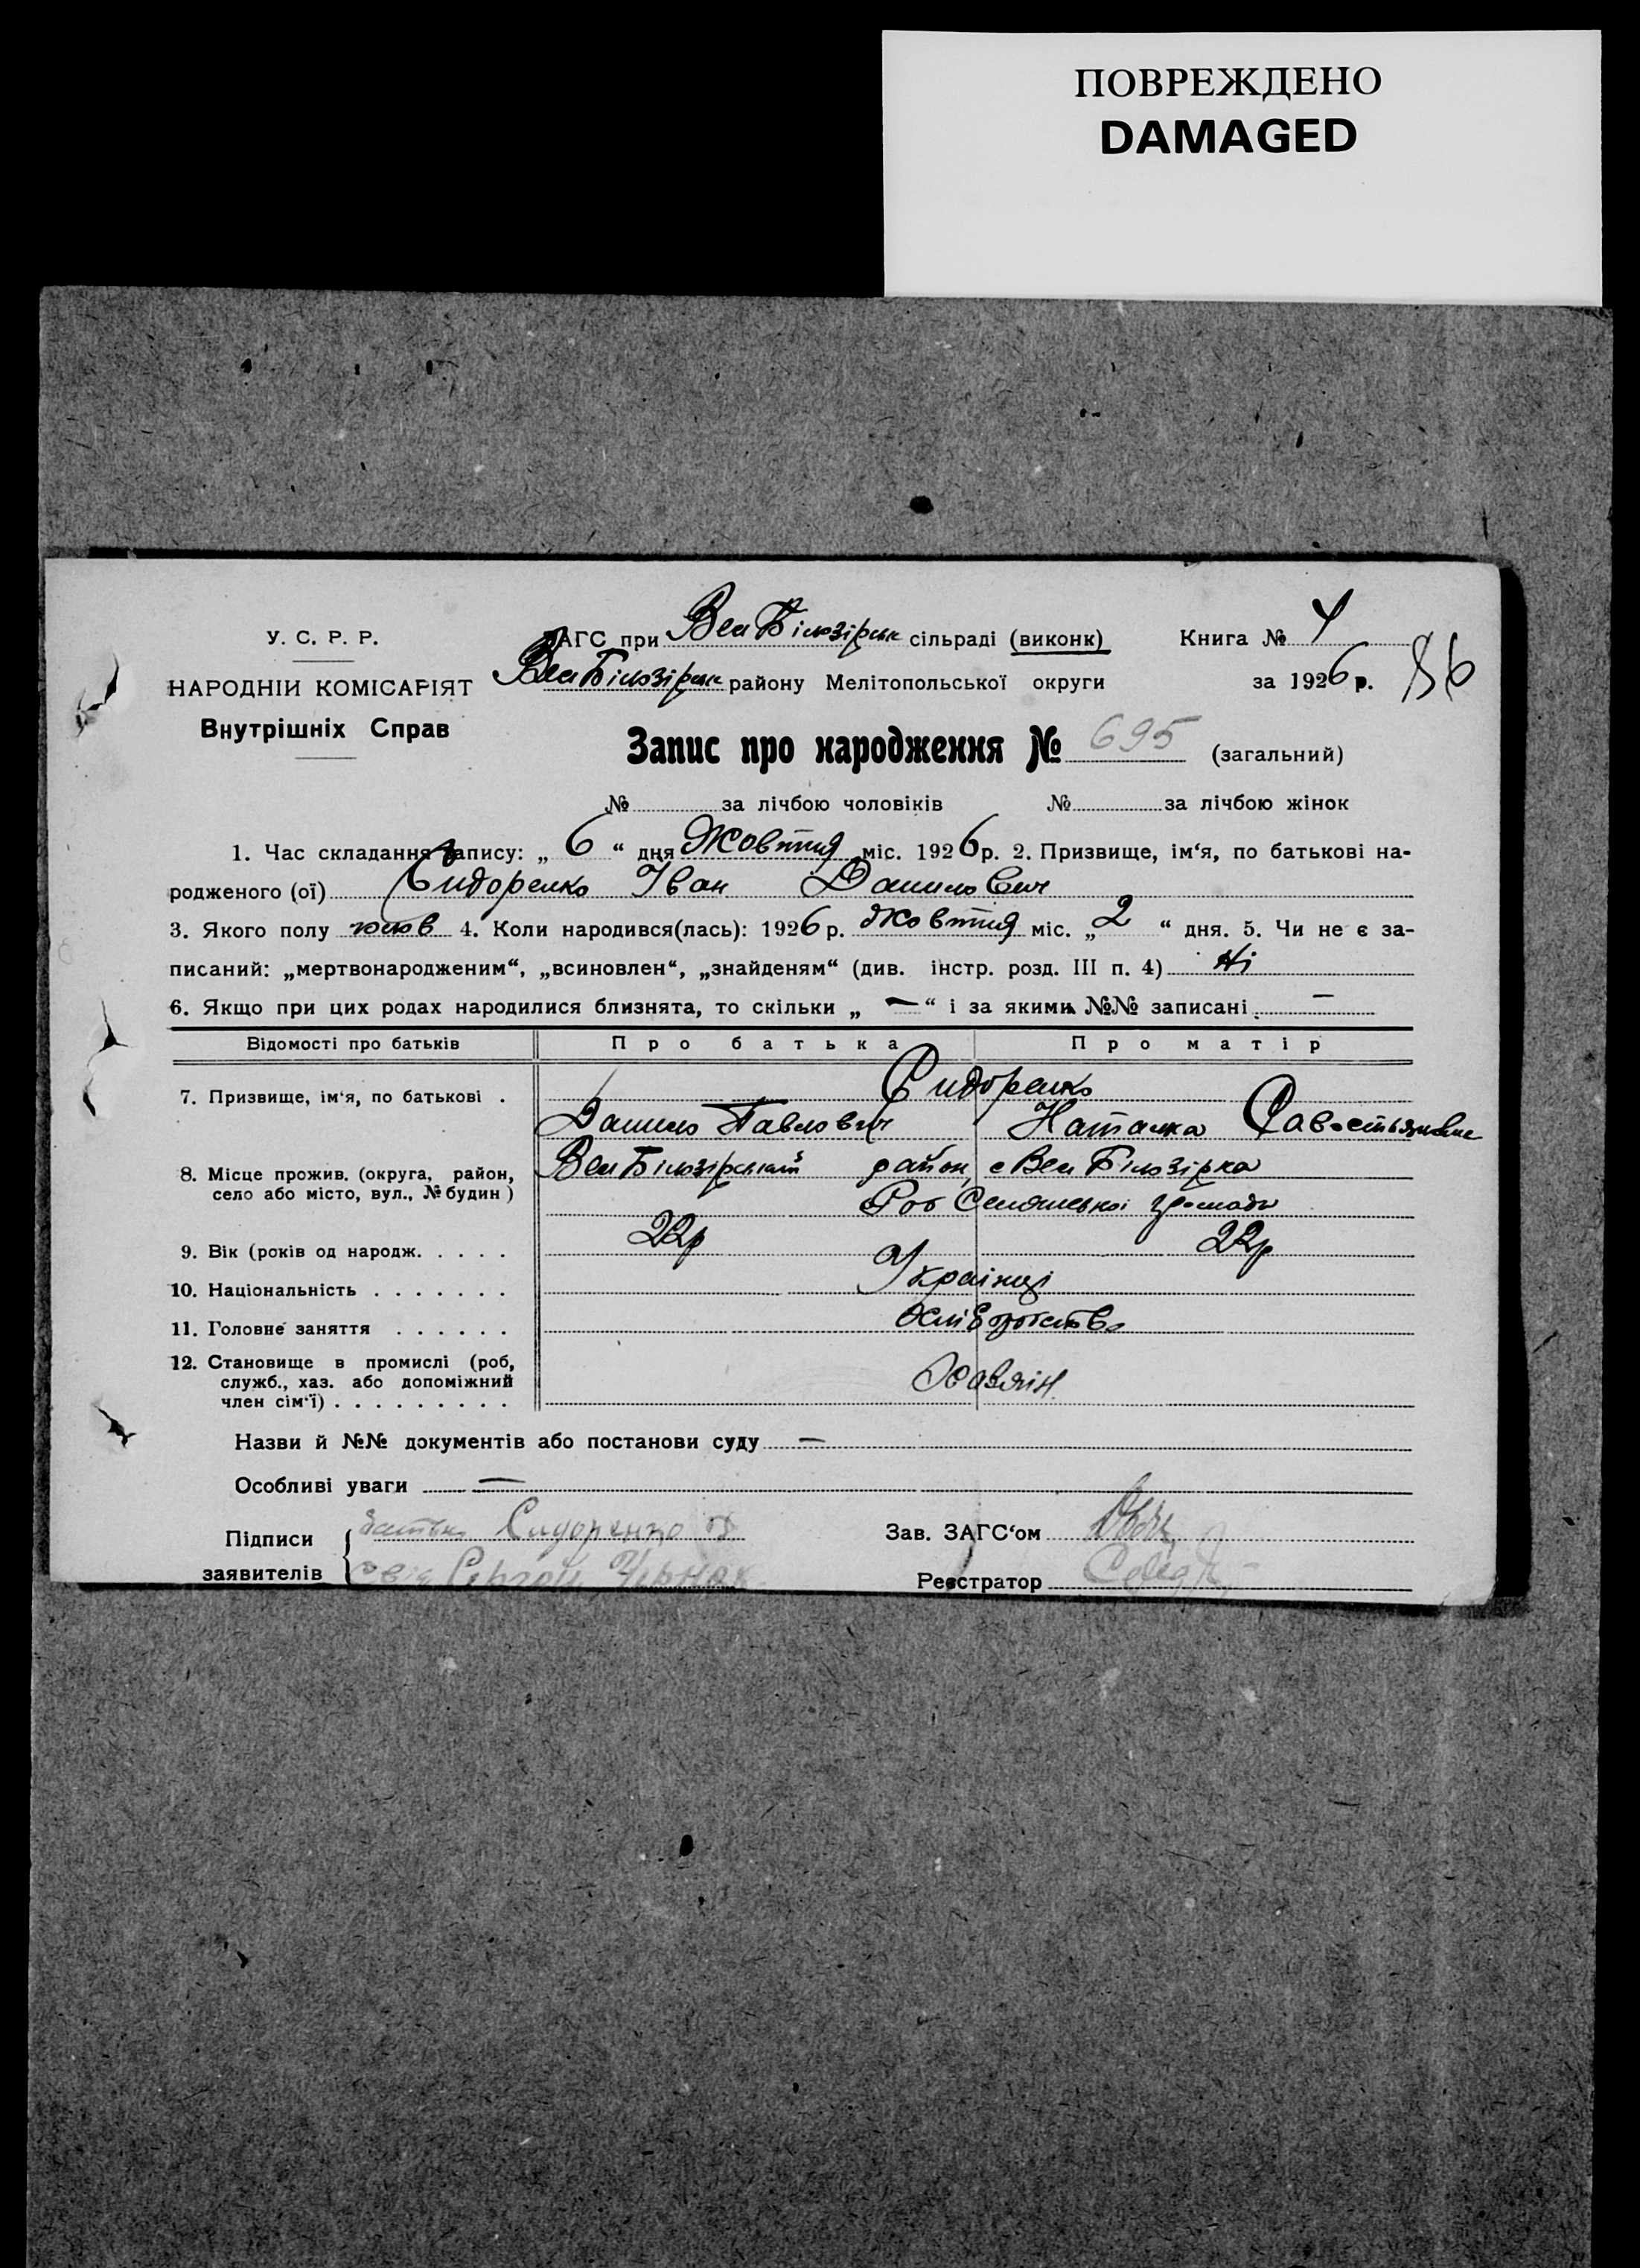 ПОВРЕЖДЕНО
DAMAGED
У. С. Р. Р.
НАРОДНІЙ КОМІСАРІЯТ
Внутрішніх Справ
ЗАГС при Вел Білозірськ сільраді (виконк)
Вел Білозірськ району Мелітопольської округи
Книга № 4
за 1926 р. 86
Запис про народження № 695 (загальний)
№ за лічбою чоловіків № за лічбою жінок
1. Час складання запису: „ 6 “ дня Жовтня міс. 1926 р. 2. Призвище, ім‘я, по батькові на-
родженого (ої) Сидоренко Іван Данилович
3. Якого полу 4. Коли народився(лась): 1926 р. Жовтня міс. „ 2 “ дня. 5. Чи не є за-
писаний: „мертвонародженим“, „всиновлен“, „знайденям“ (див. інстр. розд. III п. 4) Ні
6. Якщо при цих родах народилися близнята, то скільки „ — “ і за якими №№ записані —
Відомості про батьків Про батька Про матір
7. Призвище, ім‘я, по батькові . Сидоренко
Данило Павлович Наталка Савостьяновна
8. Місце прожив. (округа, район,
село або місто, вул., № будин )
Вел Білозірський район, с Вел Білозірка
Селянської громади
9. Вік (років од народж. . . . . 22р 22р
10. Національність . . . . . . . Українці
11. Головне заняття . . . . . . Хліборобство
12. Становище в промислі (роб,
служб., хаз. або допоміжний
член сім‘ї) . . . . . . . . . Хазяін
Назви й №№ документів або постанови суду —
Особливі уваги —
Підписи
заявителів
батько Сидоренко Д
свід Сергій Черняк
Зав. ЗАГС‘ом
Реєстратор